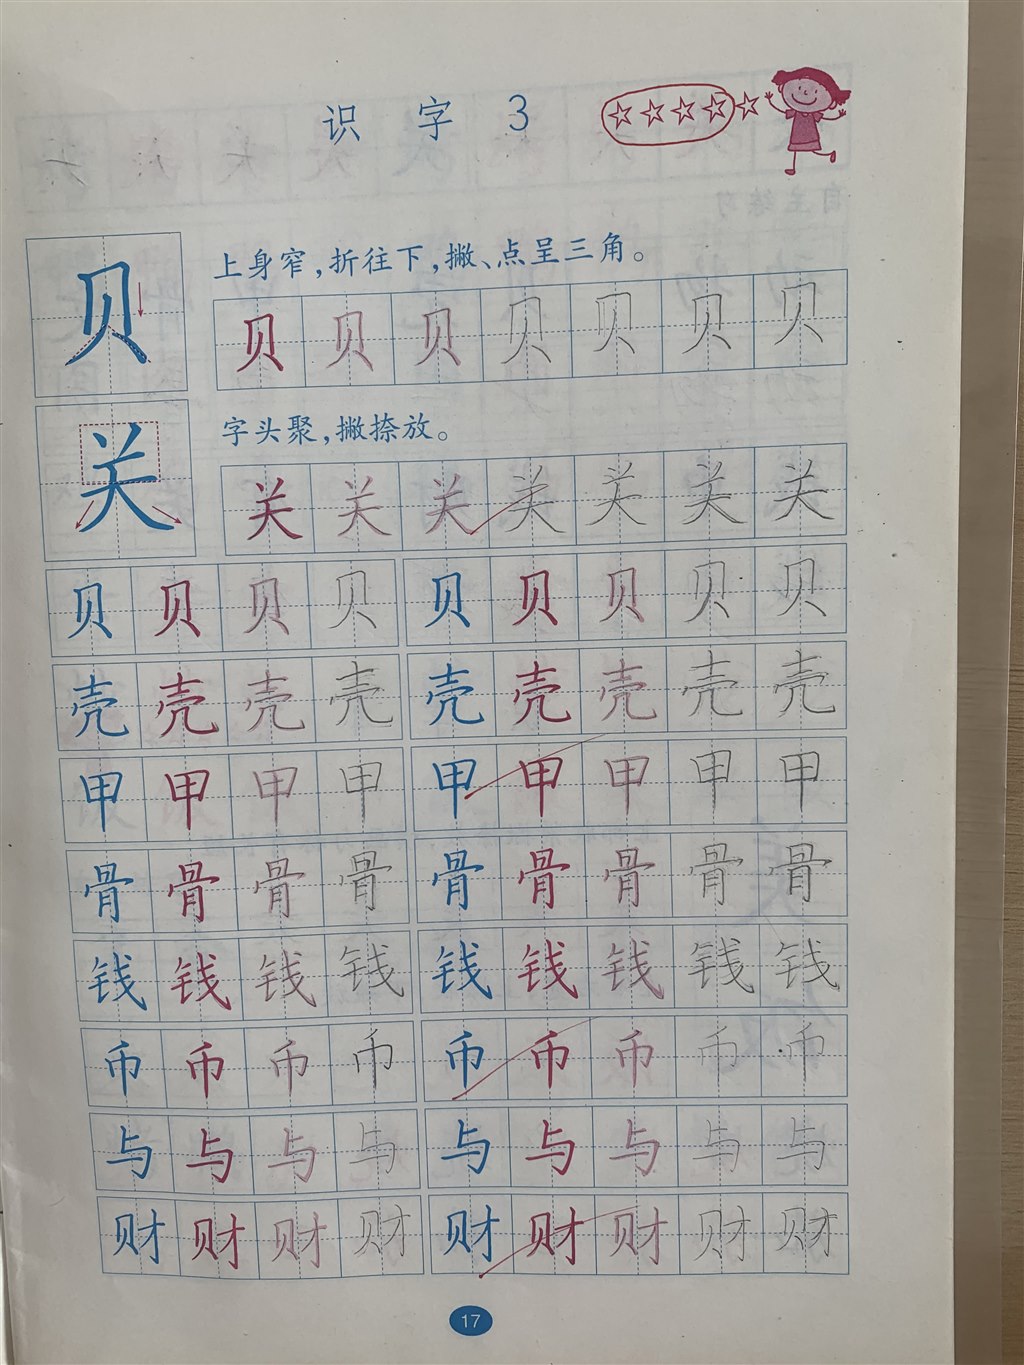 识字3
上身窄，折往下，撇、点呈三角。
贝 贝贝贝贝贝贝贝
字头聚，撇捺放。
关 关关关关关关关
贝贝贝贝 贝贝贝贝贝
壳壳壳壳 壳壳壳壳壳
甲甲甲甲 甲甲甲甲甲
骨骨骨骨 骨骨骨骨骨
钱钱钱钱 钱钱钱钱钱
币币币币 币币币币币
与与与与 与与与与与
财财财财 财财财财财
17